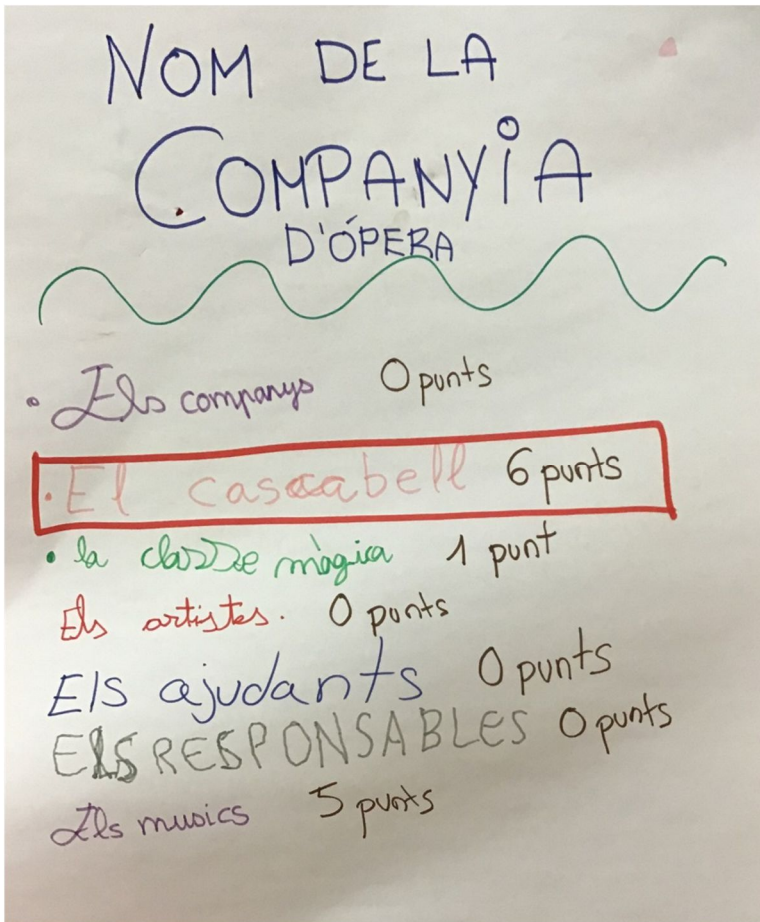 NOM DE LA
COMPANYIA
D'ÓPERA
• Els companys 0 punts
• El cascabell 6 punts
• la classe màgica 1 punt
Els artistes. 0 punts
Els ajudants 0 punts
ELS RESPONSABLES 0 punts
Els musics 5 punts